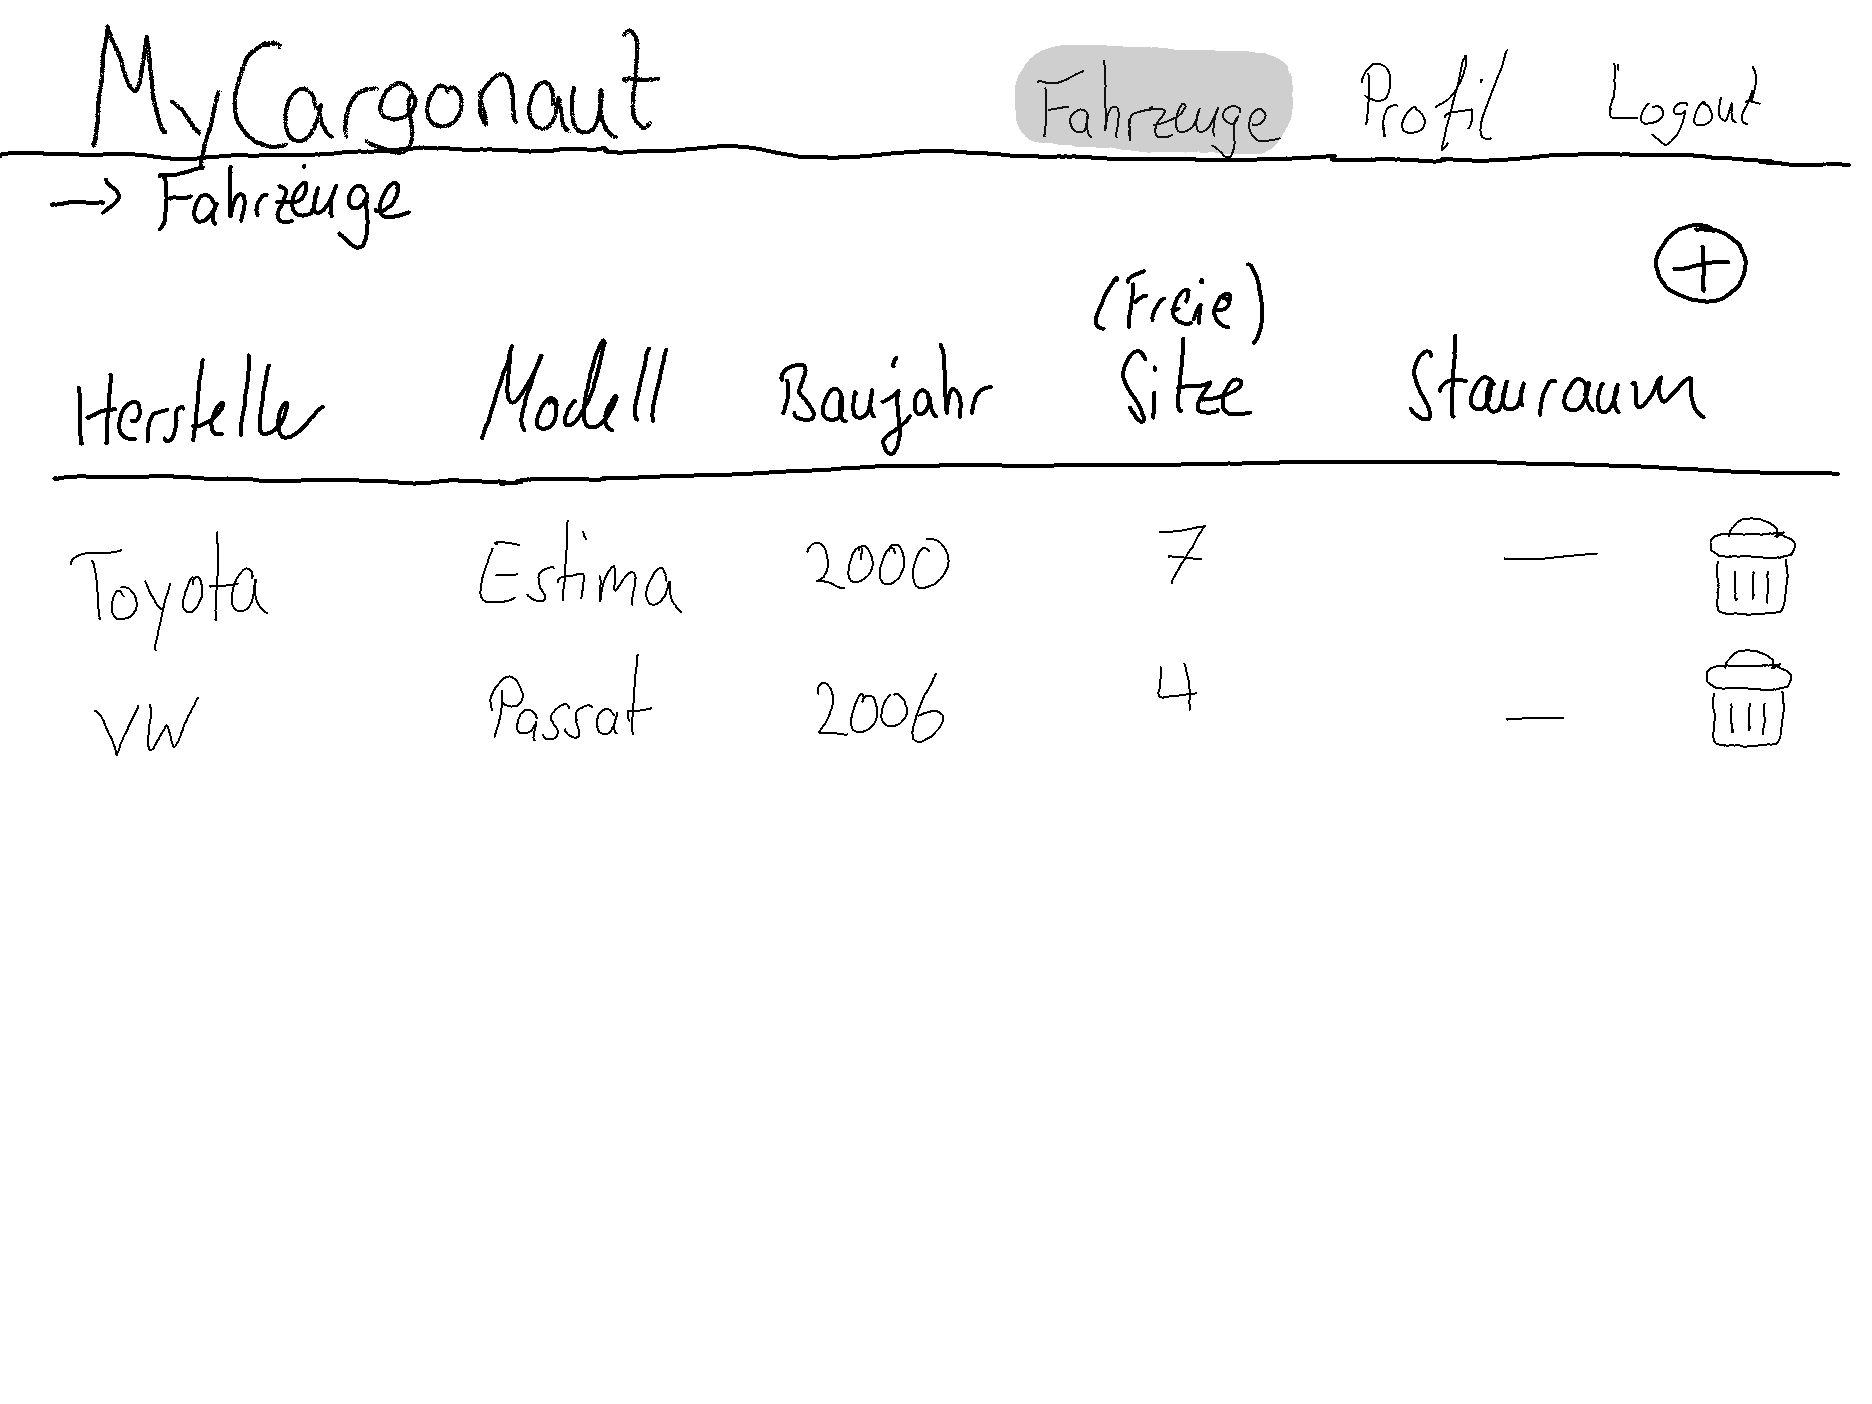 MyCargonaut Fahrzeuge Profil Logout
→ Fahrzeuge
+
(Freie)
Hersteller Modell Baujahr Sitze Stauraum
Toyota Estima 2000 7 —
VW Passat 2006 4 —